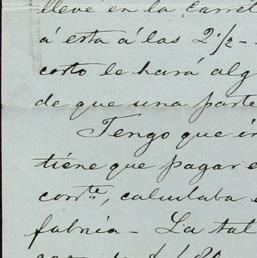 llevé en la carret
á esta á las 2½ -
corto le hará alg
de que una parte
Tengo que in
tiene que pagar e
conte, calculaba
fabria - La tal